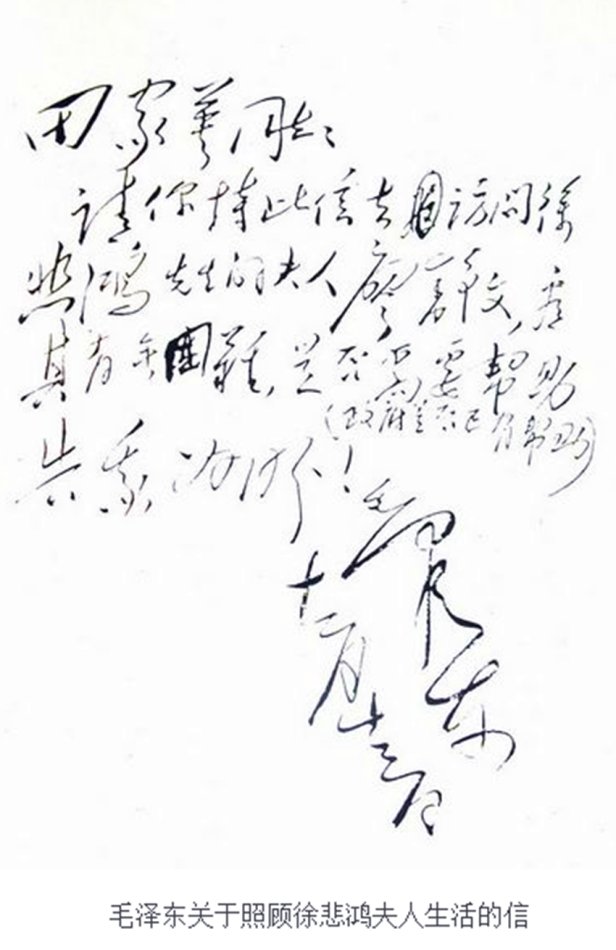 田家英同志:
请你持此信去访问徐
悲鸿先生的夫人廖静文,看
其有无困难,是否需要帮助
(政府是否已有帮助)
告我为盼!
毛泽东
十二月十三日
毛泽东关于照顾徐悲鸿夫人生活的信